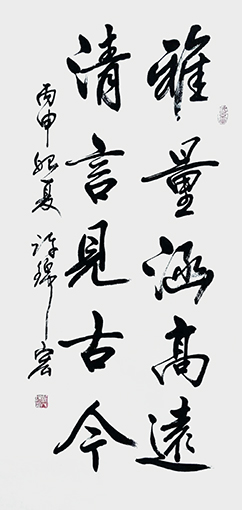 雅量涵高遠
清言見古今
丙申初夏